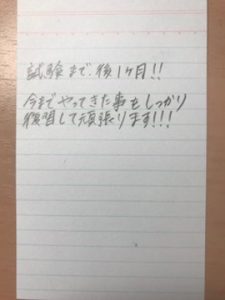 試験まで、後1ヶ月!!
今までやってきた事もしっかり
復習して頑張ります!!!